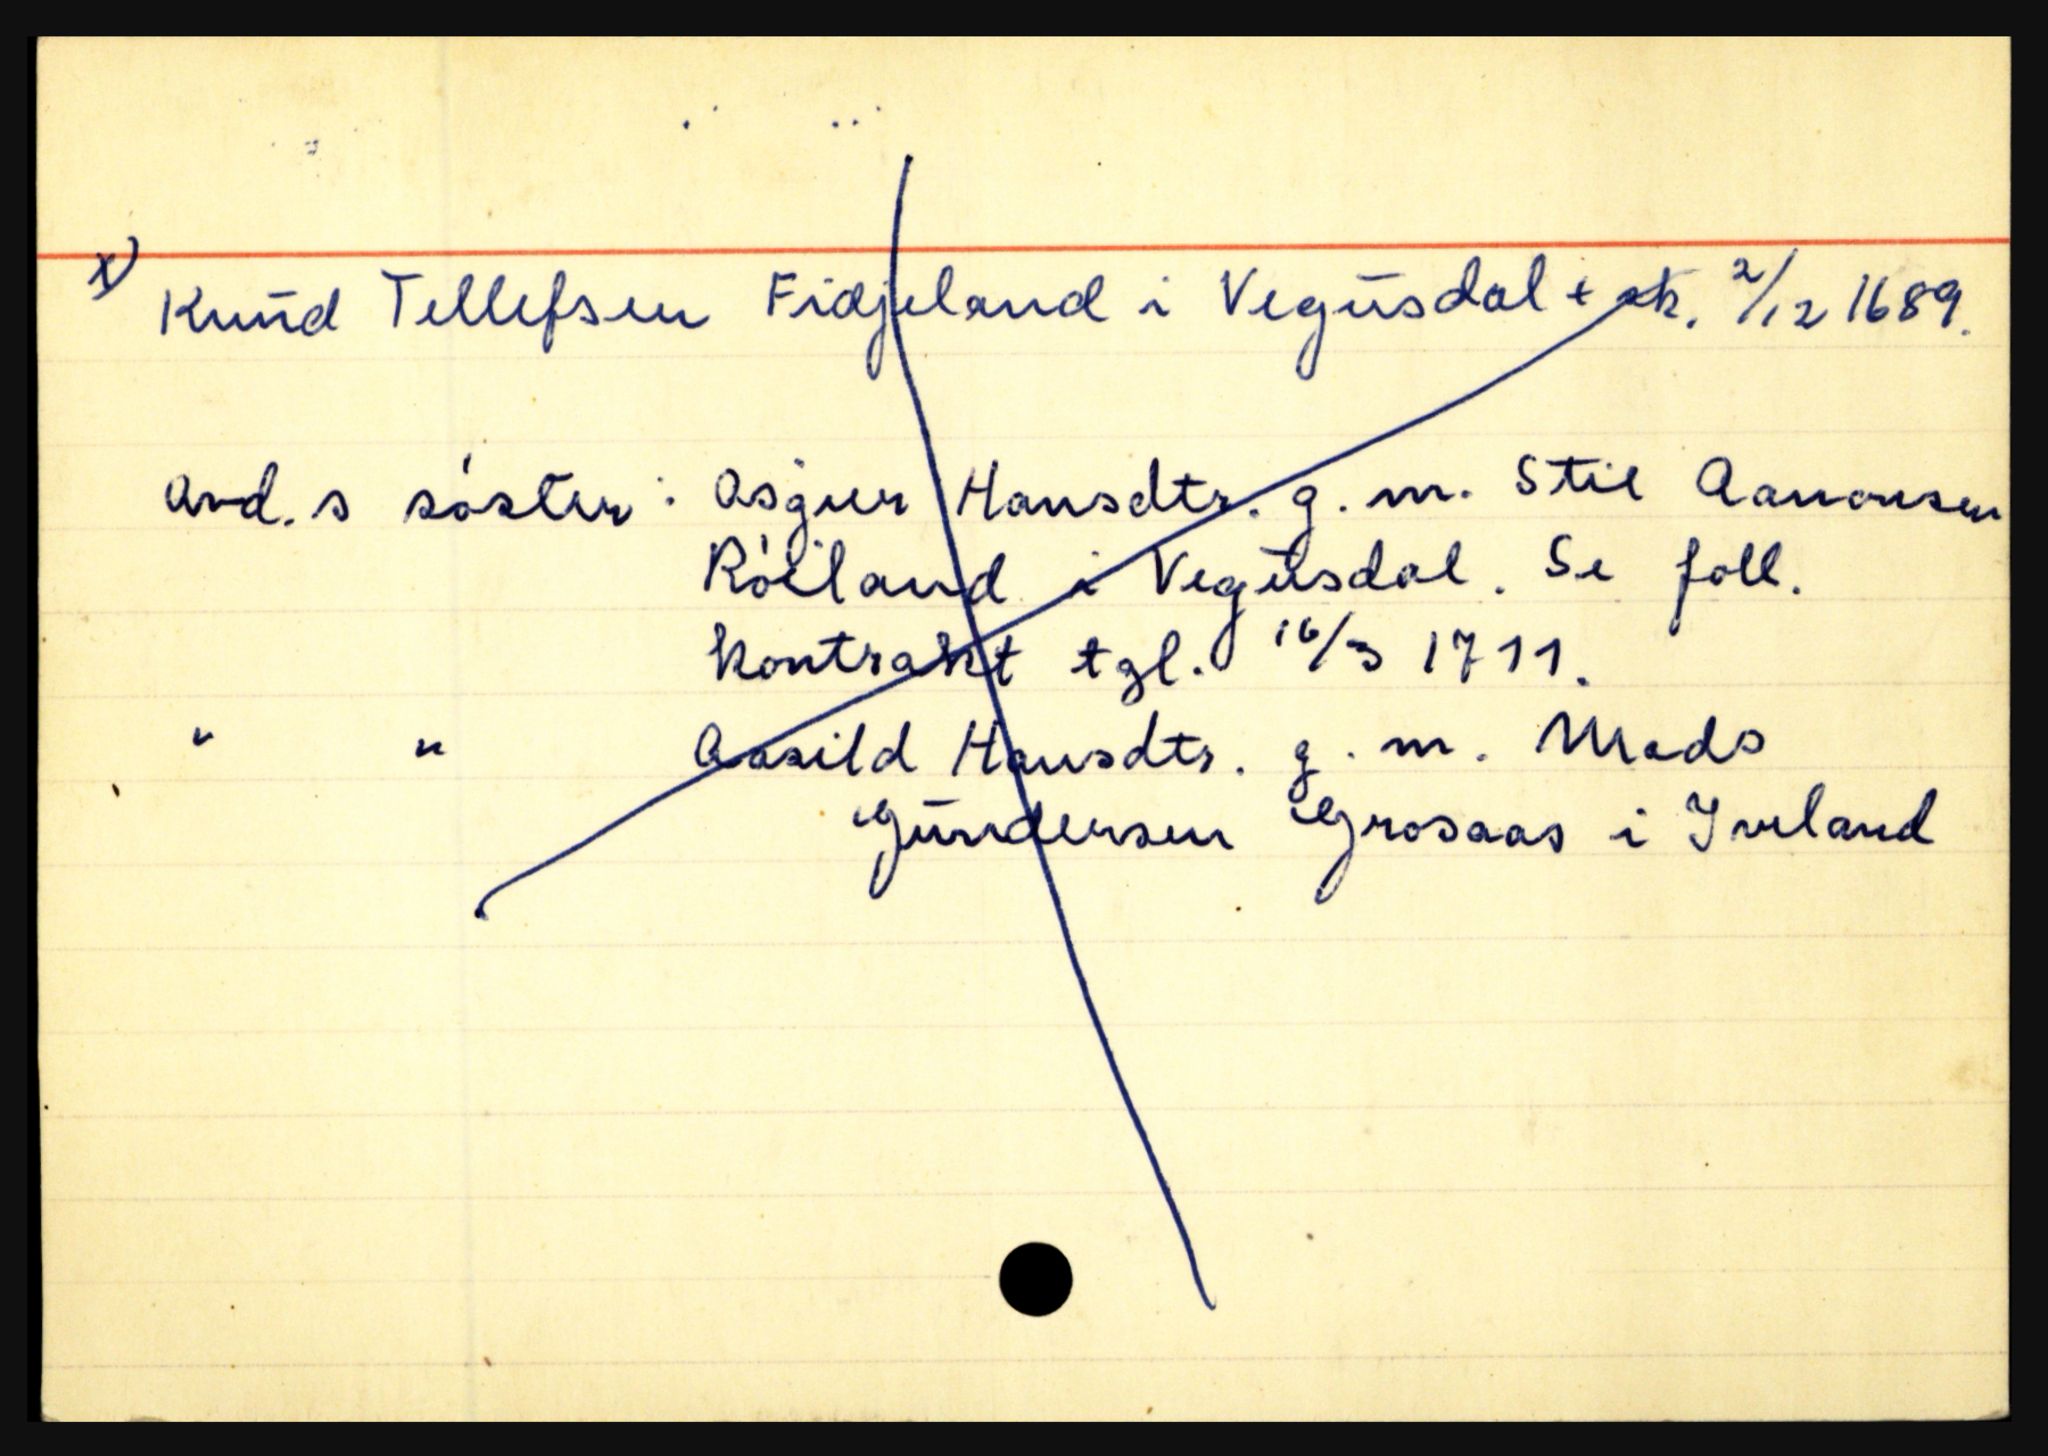 x) Knud Tellefsen Fidjeland i Vegusdal + sk. 2/12 1689.
Avd. s søster: Asgjer Hansdtr. g. m. Stie Aanonsen
Røiland i Vegusdal. Se foll.
kontrakt tgl. 16/3 1711.
" " Aasild Hansdtr. g. m. Mads
Gundersen Grosaas i Iveland